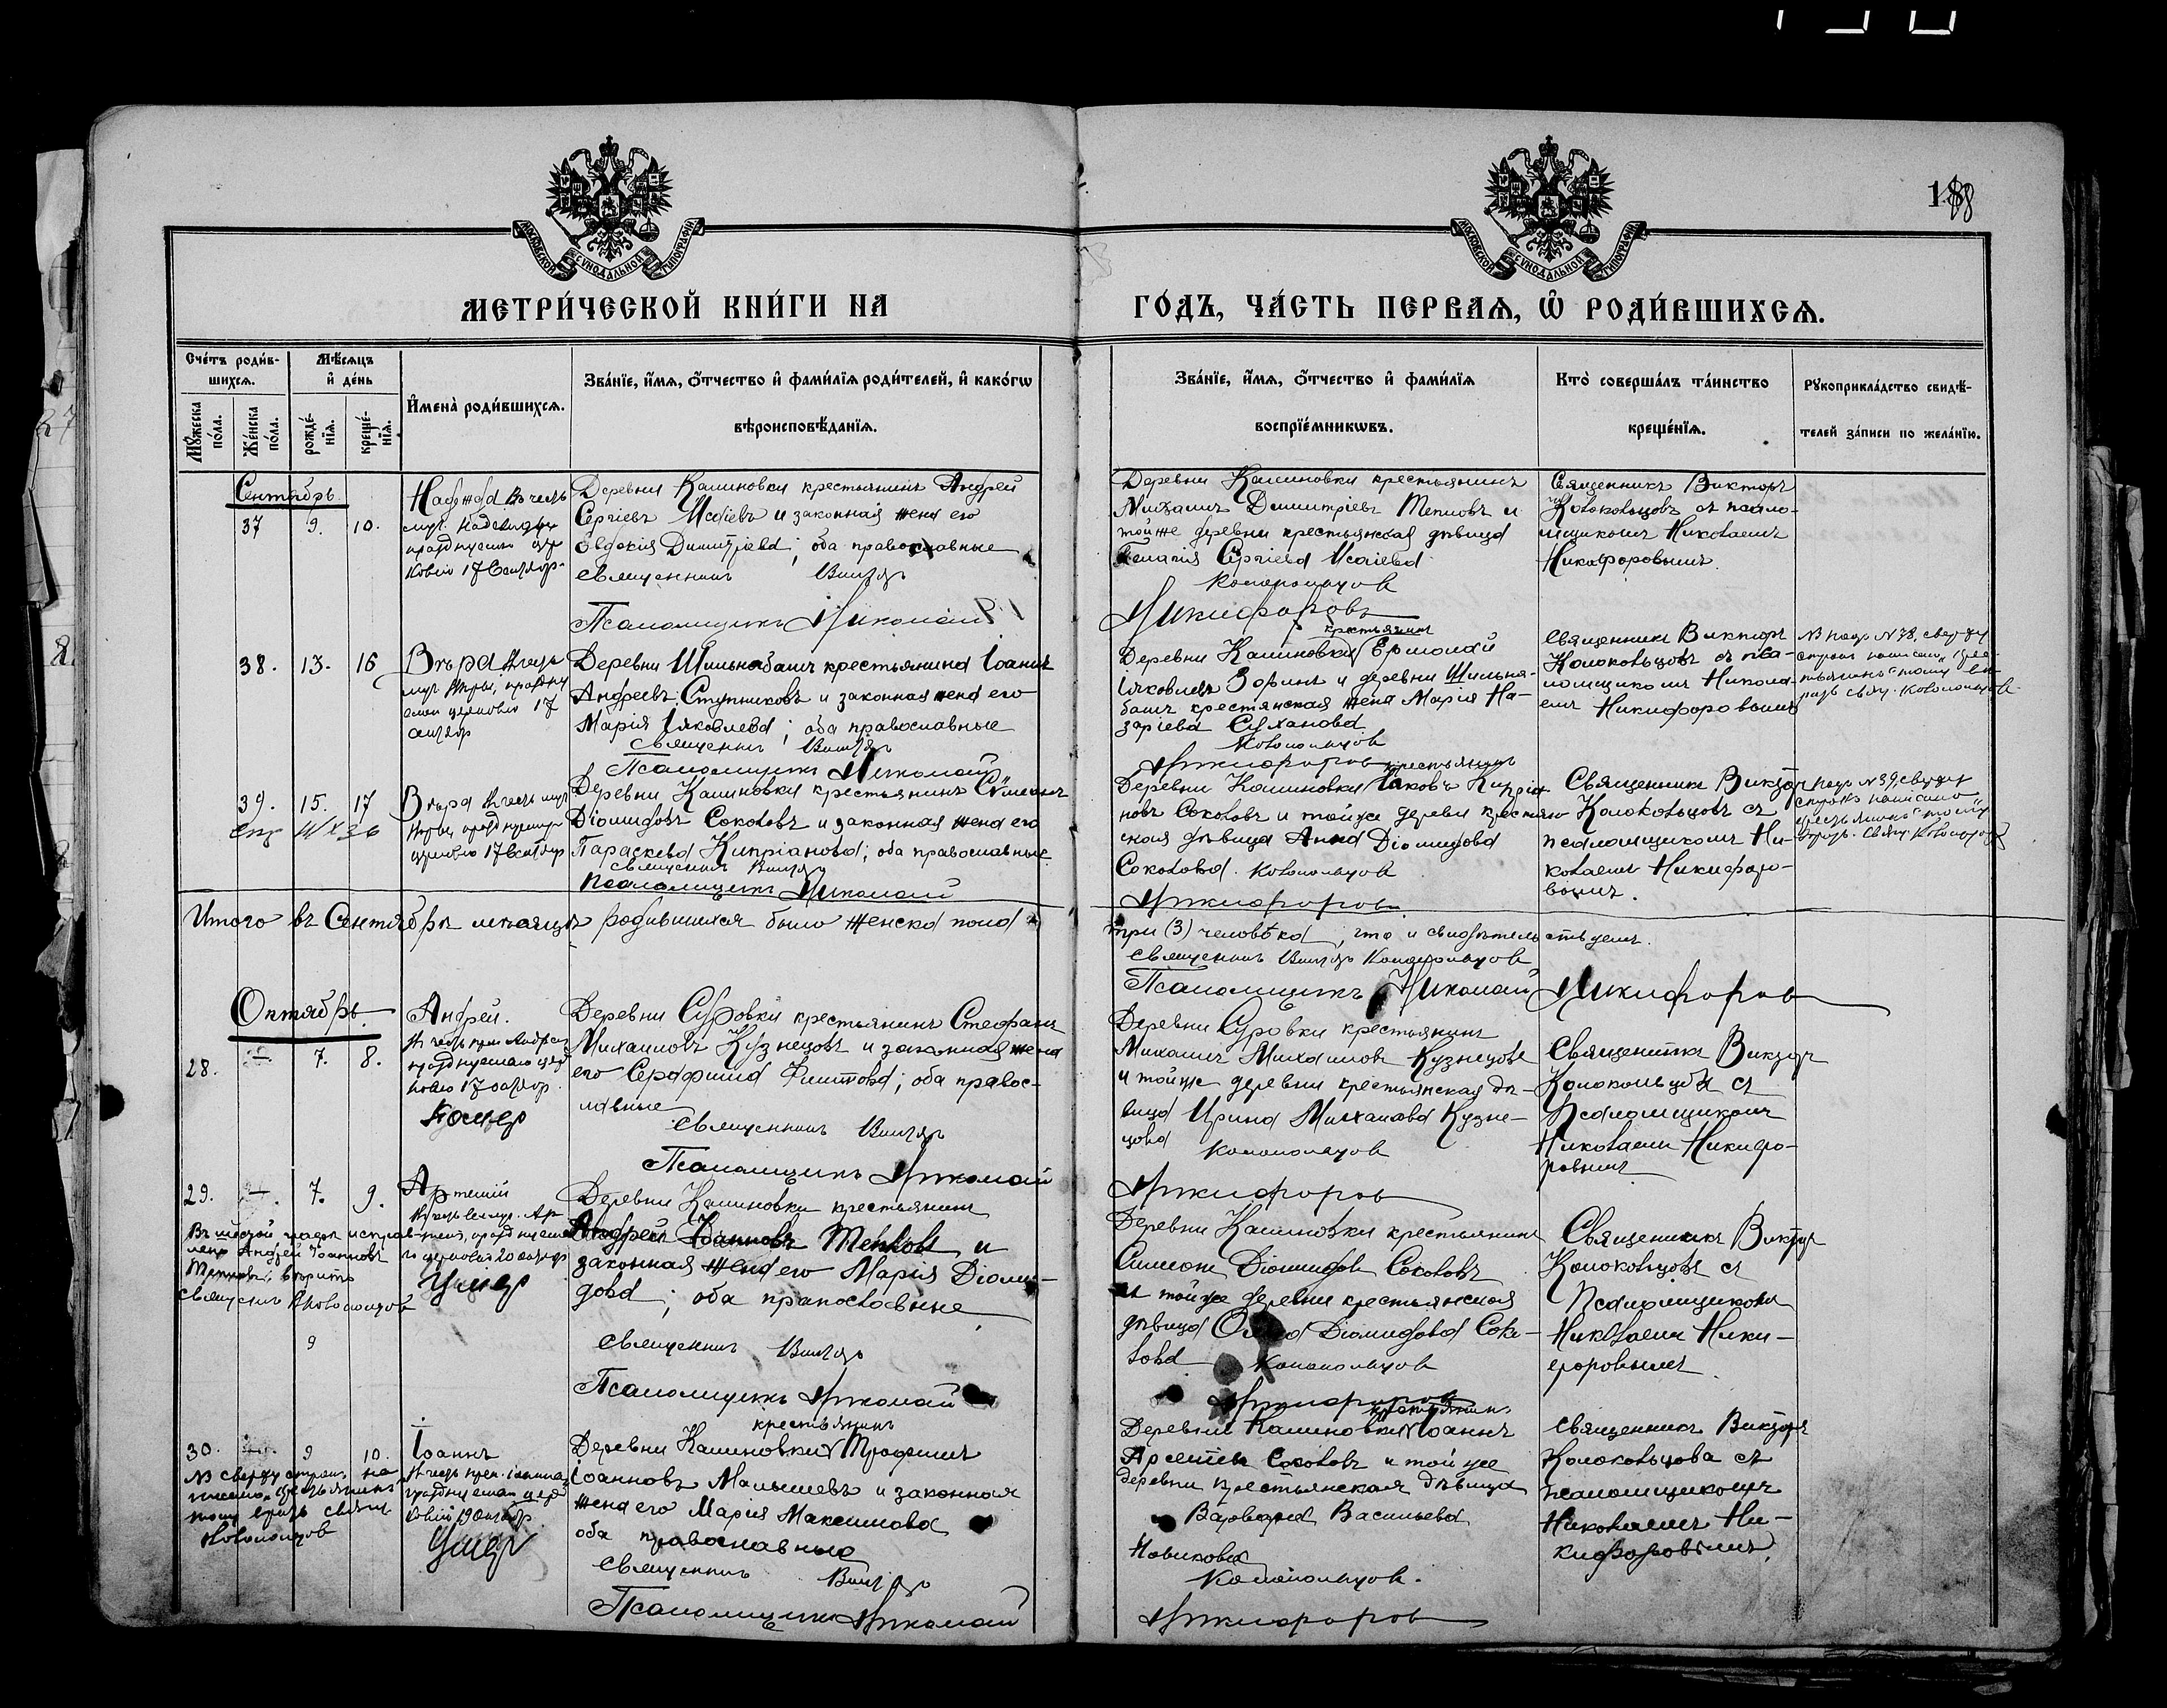 188
МОСКОВСКОЙ СѴНОДАЛЬНОЙ ТИПОГРАФІИ
МОСКОВСКОЙ СѴНОДАЛЬНОЙ ТИПОГРАФІИ
МЕТРИ́ЧЕСКОЙ КНИ́ГИ НА ГО́ДЪ, ЧА́СТЬ ПЕРВАѦ, Ѡ҆ РОДИ́ВШИХСѦ.
Сче́тъ роди́в-
шихсѧ.
Мꙋ́жеска по́ла.
Же́нска по́ла.
Мѣ́сѧцъ
и҆ де́нь
рожде́-
нїѧ.
креще́-
нїѧ.
И҆мена̀ роди́вшихсѧ.
Зва́нїе, и҆́мѧ, ѻ҆́тчество и҆ фами́лїѧ роди́телей, и҆ како́гѡ
вѣроисповѣ́данїѧ.
Зва́нїе, и҆́мѧ, ѻ҆́тчество и҆ фами́лїѧ
воспрїе́мникѡвъ.
Кто̀ соверша́лъ та́инство
креще́нїѧ.
Рꙋкоприкла́дство свидѣ́-
телей за́писи по жела́нїю.
Сентябрь
37 9. 10.
Надежда въ честь
муч. Надежды
празднуемой цер
ковію 17 Сентяр.
Деревни Калиновки крестьянинъ Андрей
Сергіевъ Исаіевъ и законная жена его
Евдокія Димитріева; оба православные
Священникъ Викторъ
Псаломщикъ Николай
Деревни Калиновки крестьянинъ
Михаилъ Димитріевъ Тепловъ и
той же деревни крестьянская дѣвица
Пелагія Сергіева Исаіева
Колокольцовъ
Никифоровъ
Священникъ Викторъ
Колокольцовъ съ псало-
мщикомъ Николаемъ
Никифоровымъ.
38. 13. 16
Вѣра въ честь
муч. Вѣры, праздну
емой церковію 17
сентяр
Деревни Шильнабашъ крестьянина Іоаннъ
Андреевъ Ступниковъ и законная жена его
Марія Іяковлева; оба православные
Священникъ Викторъ
Псаломщикъ Николай
крестьянинъ
Деревни Калиновки Ермолай
Іяковлевъ Зоринъ и деревни Шильна-
башъ крестянская жена Марія На-
заріева Суханова
Колокольцовъ
Никифоровъ
Священникъ Викторъ
Колокольцовъ съ пса-
ломщикомъ Никола-
емъ Никифоровымъ
39. 15. 17
Вѣра въ честь муч
Вѣры празднуемой
церковію 17 Сентяр
Деревни Калиновки крестьянинъ Сѵмеонъ
Діомидовъ Соколовъ и законная жена его
Параскева Кипріанова; оба православные
Священникъ Викторъ
Псаломщикъ Николай
крестьянинъ
Деревни Калиновки Іаковъ Кипріа-
новъ Соколовъ и той же деревни крестьян
ская дѣвица Анна Діомидова
Соколова. Колокольцовъ
Никифоровъ
Священникъ Викторъ
Колокольцовъ съ
псаломщикомъ Ни-
колаемъ Никифоро-
вымъ.
Итого въ Сентябрѣ мѣсяцѣ родившихся было женска пола три (3) человѣка, что и свидѣтельствуемъ.
Священникъ Викторъ Колокольцовъ
Псаломщикъ Николай Никифоровъ
Октябрь.
28. 7. 8.
Андрей.
Въ честь преп. Андрея
празднуемаго цер
ковію 17 октяр.
Умер
Деревни Суровки крестьянинъ Стефанъ
Михаиловъ Кузнецовъ и законная жена
его Серафима Филипова; оба правос-
лавные
Священникъ Викторъ
Псаломщикъ Николай
Деревни Суровки крестьянинъ
Михаилъ Михаиловъ Кузнецовъ
и той же деревни крестьянская дѣ-
вица Ирина Михаилова Кузне-
цова Колокольцовъ
Никифоровъ
Священникъ Викторъ
Колокольцовъ съ
Псаломщикомъ
Николаемъ Никифо-
ровымъ
29. 7. 9.
Артемій
церковію 20 октяр
Умер
Андрей Іоанновъ
Священникъ Колокольцовъ
9
Деревни Калиновки крестьянинъ
Андрей Іоанновъ Тепловъ и
законная жена его Марія Діоми-
дова; оба православные
Священникъ Викторъ
Псаломщикъ Николай
Деревни Калиновки крестьянинъ
Симеонъ Діомидовъ Соколовъ
и той же деревни крестьянская
дѣвица Діомидова Соко-
лова Колокольцовъ
Никифоровъ
Священникъ Викторъ
Колокольцовъ съ
Псаломщикомъ
Николаемъ Ники-
форовымъ.
30. 9 10.
Іоаннъ
Въ честь преп. Іоанна
празднуемаго цер
ковію 19 октябр
Умер
крестьянинъ
Деревни Калиновки Трофимъ
Іоанновъ Малышевъ и законная
жена его Марія Максимова
оба православные
Священникъ Викторъ
Псаломщикъ Николай
крестьянинъ
Деревни Калиновки Іоаннъ
Арсеніевъ Соколовъ и той же
деревни крестьянская дѣвица
Варвара Васильева
Новикова
Колокольцовъ.
Никифоровъ
Священникъ Викторъ
Колокольцовъ съ
псаломщикомъ
Николаемъ Ни-
кифоровымъ.